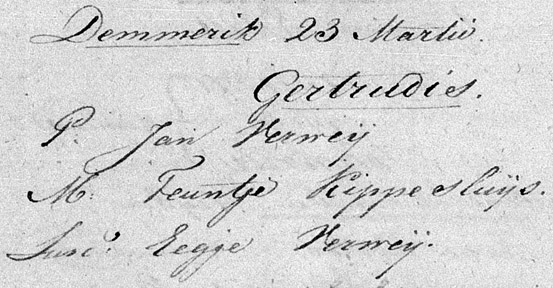 Demmerik 23 Martii.
Gertrudis.
P. Jan Verweij
M: Teuntje Kippersluijs.
Susc: Eegje Verweij.